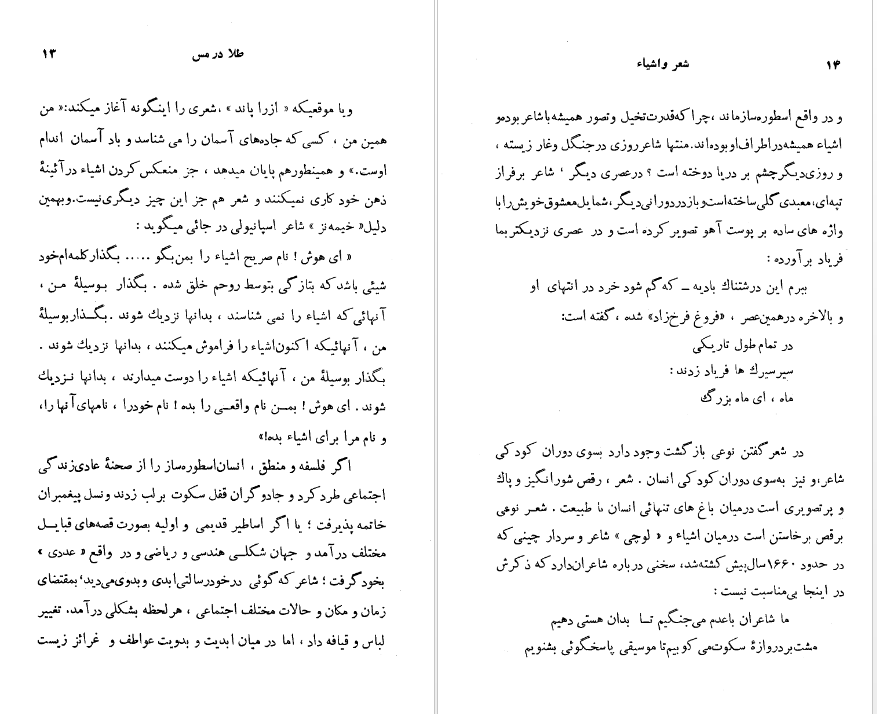 طلا در مس ۱۳
و یا موقعیکه « ازرا پاند » ، شعری را اینگونه آغاز میکند : « من
همین من ، کسی که جاده‌های آسمان را می شناسد و باد آسمان اندام
اوست . » و همینطور هم پایان میدهد ، جز منعکس کردن اشیاء در آئینهٔ
ذهن خود کاری نمیکنند و شعر هم جز این چیز دیگری نیست . و بهمین
دلیل « خیمه‌نز » شاعر اسپانیولی در جائی میگوید :
« ای هوش ! نام صریح اشیاء را بمن بگو ..... بگذار کلمه‌ام خود
شیئی باشد که بتازگی بتوسط روحم خلق شده . بگذار بوسیلهٔ من ،
آنهائی که اشیاء را نمی شناسند ، بدانها نزدیك شوند . بگذار بوسیلهٔ
من ، آنهائیکه اکنون اشیاء را فراموش میکنند ، بدانها نزدیك شوند .
بگذار بوسیلهٔ من ، آنهائیکه اشیاء را دوست میدارند ، بدانها نزدیك
شوند . ای هوش ! بمن نام واقعی را بده ! نام خود را ، نامهای آنها را ،
و نام مرا برای اشیاء بده ! »
اگر فلسفه و منطق ، انسان اسطوره‌ساز را از صحنهٔ عادی زندگی
اجتماعی طرد کرد و جادوگران قفل سکوت بر لب زدند و نسل پیغمبران
خاتمه پذیرفت ؛ یا اگر اساطیر قدیمی و اولیه بصورت قصه‌های قبایل
مختلف درآمد و جهان شکلی هندسی و ریاضی و در واقع « عددی »
بخود گرفت ؛ شاعر که گوئی در خود رسالتی ابدی و بدوی می‌دید ، بمقتضای
زمان و مکان و حالات مختلف اجتماعی ، هر لحظه بشکلی درآمد . تغییر
لباس و قیافه داد ، اما در میان ابدیت و بدویت عواطف و غرائز زیست
شعر و اشیاء ۱۴
و در واقع اسطوره‌ساز ماند ، چرا که قدرت تخیل و تصور همیشه با شاعر بوده و
اشیاء همیشه در اطراف او بوده‌اند . منتها شاعر روزی در جنگل و غار زیسته ،
و روزی دیگر چشم بر دریا دوخته است ؟ در عصری دیگر ، شاعر بر فراز
تپه‌ای ، معبدی گلی ساخته است و باز در دورانی دیگر ، شمایل معشوق خویش را با
واژه های ساده بر پوست آهو تصویر کرده است و در عصری نزدیکتر بما
فریاد برآورده :
ببرم این درشتناك بادیه – که گم شود خرد در انتهای او
و بالاخره در همین عصر ، « فروغ فرخ‌زاد » شده ، گفته است :
در تمام طول تاریکی
سیرسیرك ها فریاد زدند :
ماه ، ای ماه بزرگ
در شعر گفتن نوعی بازگشت وجود دارد بسوی دوران کودکی
شاعر ، و نیز به‌سوی دوران کودکی انسان . شعر ، رقص شورانگیز و پاك
و پرتصویری است درمیان باغ های تنهائی انسان با طبیعت . شعر نوعی
برقص برخاستن است درمیان اشیاء و « لوچی » شاعر و سردار چینی که
در حدود ۱۶۶۰ سال پیش کشته شد ، سخنی در باره شاعران دارد که ذکرش
در اینجا بی‌مناسبت نیست :
ما شاعران با عدم می‌جنگیم تا بدان هستی دهیم
مشت بر دروازهٔ سکوت می کوبیم تا موسیقی پاسخگوئی بشنویم